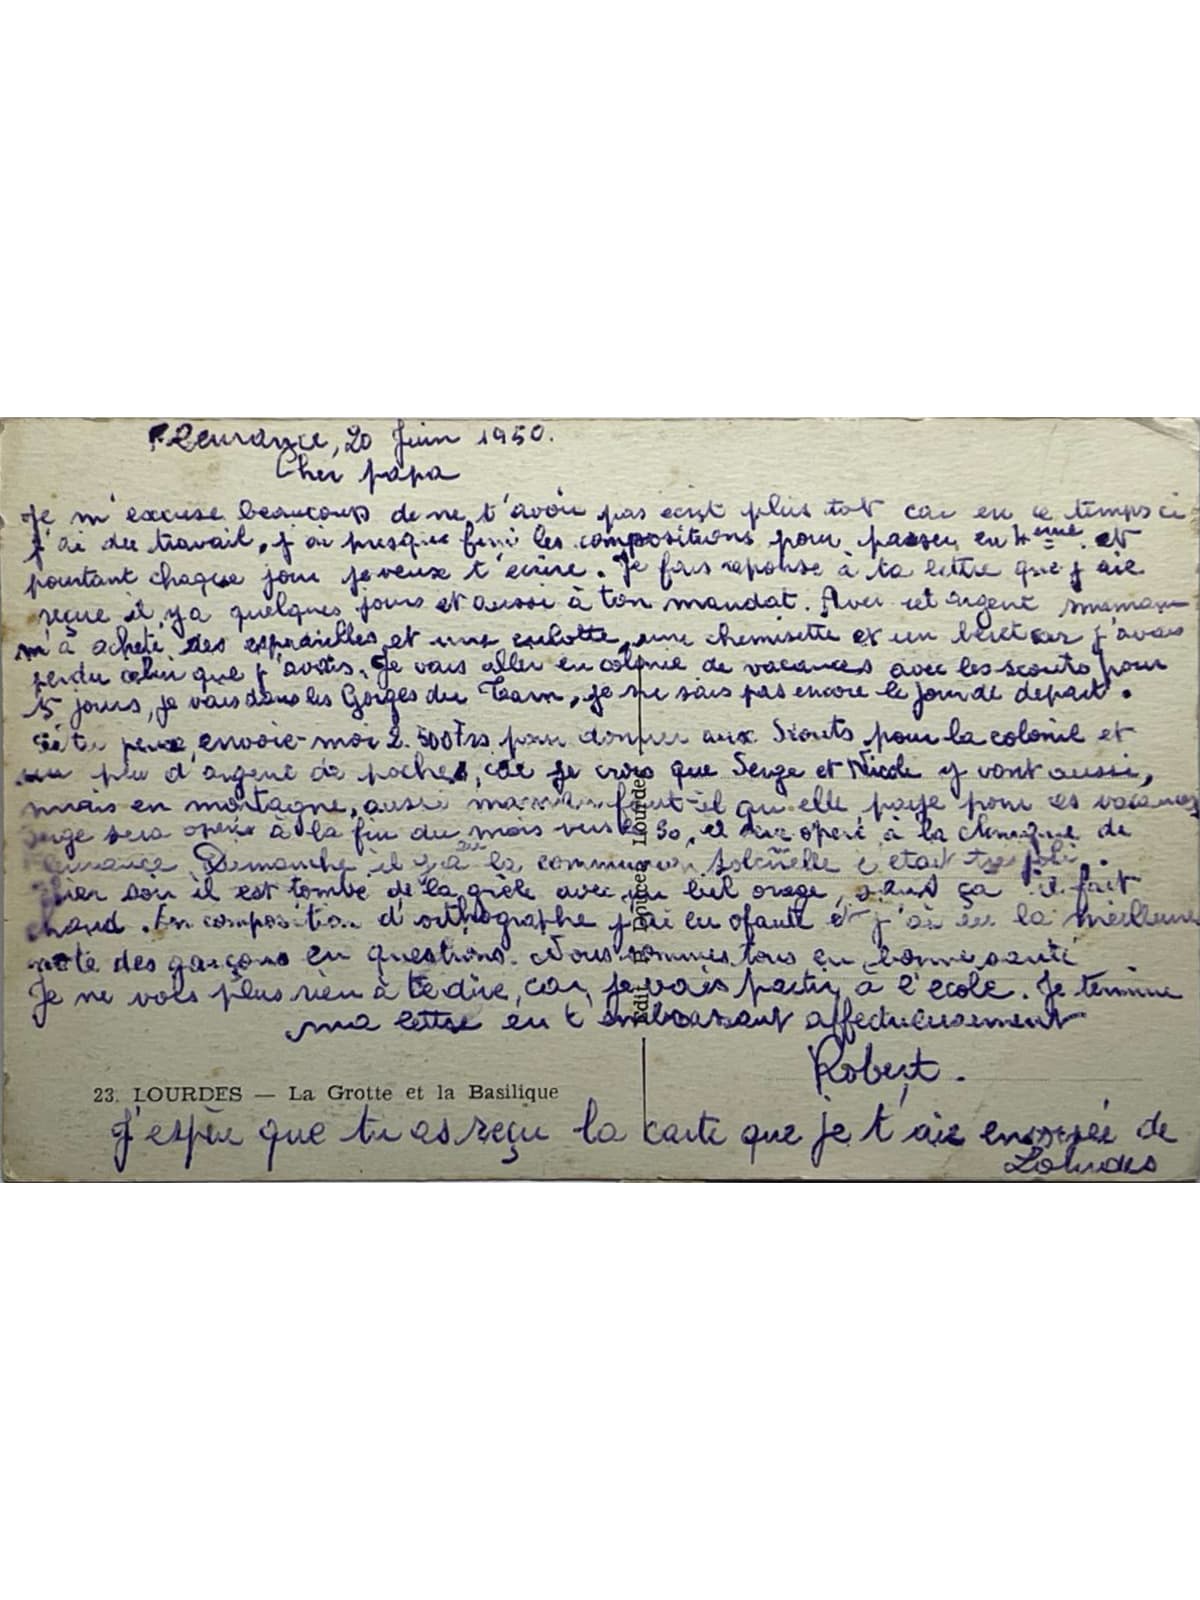 Fleurance, 20 Juin 1950.
Cher papa
Je m'excuse beaucoup de ne t'avoir pas écrit plus tot car en ce temps ci
j'ai du travail, j'ai presque fini les compositions pour passer en 4ème et
pourtant chaque jour je veux t'écrire. Je fais reponse à ta lettre que j'aie
reçue il y a quelques jours et aussi à ton mandat. Avec cet argent maman
m'à acheté des espadrilles et une culotte, une chemisette et un beret car j'avais
perdu celui que j'avais. Je vais aller en colonie de vacances avec les scouts pour
15 jours, je vais dans les Gorges du Tarn, je ne sais pas encore le jour de depart.
Si tu peux envoie-moi 2.500 Frs pour donner aux Scouts pour la colonie et
un peu d'argent de poche, car je crois que Serge et Nicole y vont aussi,
mais en montagne, aussi maman faut-il qu'elle paye pour les vacances
Serge sera opéré à la fin du mois vers le 30, et sera operé à la clinique de
Fleurance. Dimanche il y a eu la communion solennelle c'etait tres joli.
Hier soir il est tombé de la grèle avec un bel orage, sans ça il fait
chaud. En composition d'orthographe j'ai eu 0 faute et j'ai eu la meilleure
note des garçons en questions. Nous sommes tous en bonne santé
Je ne vois plus rien à te dire, car je vais partir à l'école. Je termine
ma lettre en t'embrassant affectueusement
Robert.
23. LOURDES — La Grotte et la Basilique
Edit. Doucet Lourdes
J'espère que tu as reçu la carte que je t'aie envoyée de
Lourdes